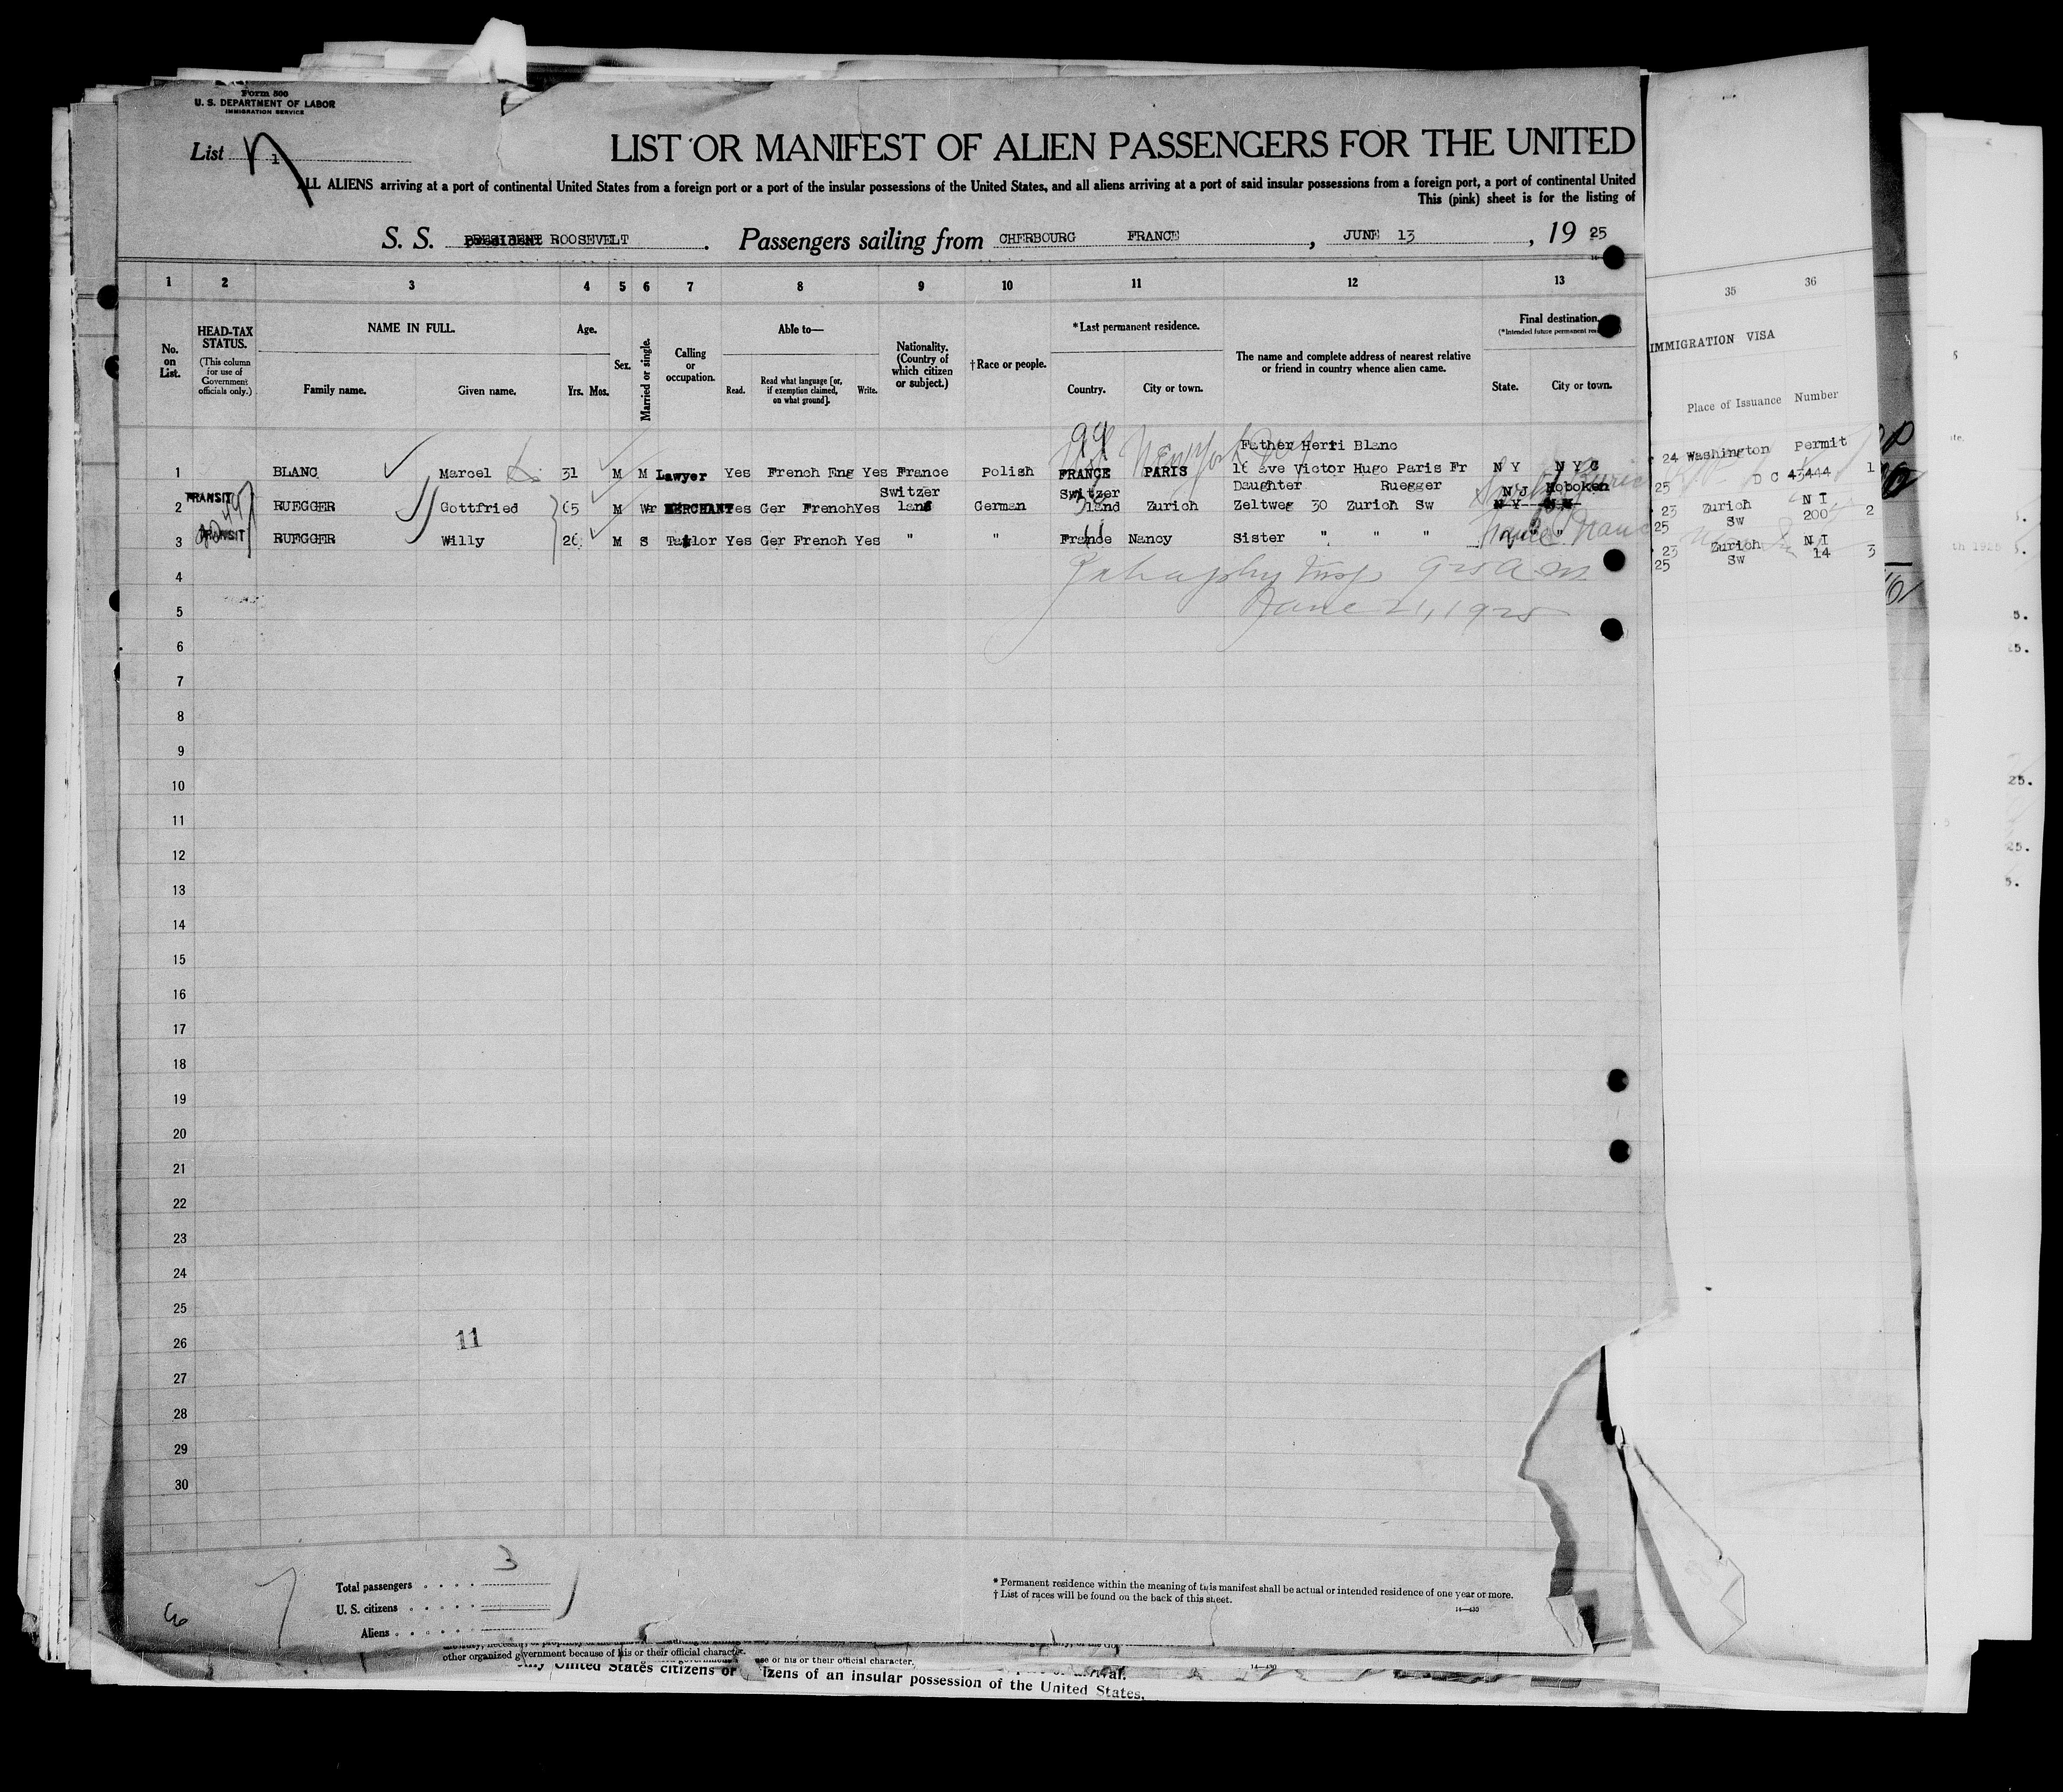 Form 500
U. S. DEPARTMENT OF LABOR
IMMIGRATION SERVICE
List 1
LIST OR MANIFEST OF ALIEN PASSENGERS FOR THE UNITED
ALL ALIENS arriving at a port of continental United States from a foreign port or a port of the insular possessions of the United States, and all aliens arriving at a port of said insular possessions from a foreign port, a port of continental United
This (pink) sheet is for the listing of
S. S. PRESIDENT ROOSEVELT . Passengers sailing from CHERBOURG FRANCE , JUNE 13 , 19 25
1 2 3 4 5 6 7 8 9 10 11 12 13
No. on List.
HEAD-TAX STATUS.
(This column for use of Government officials only.)
NAME IN FULL.
Family name. Given name.
Age.
Yrs. Mos.
Sex.
Married or single.
Calling or occupation.
Able to—
Read. Read what language [or, if exemption claimed, on what ground]. Write.
Nationality. (Country of which citizen or subject.)
†Race or people.
*Last permanent residence.
Country. City or town.
The name and complete address of nearest relative or friend in country whence alien came.
Final destination.
State. City or town.
35 36
IMMIGRATION VISA
Place of Issuance Number
99
Father Herri Blanc
1 BLANC Marcel 31 M M Lawyer Yes French Eng Yes France Polish FRANCE PARIS 16 ave Victor Hugo Paris Fr N Y N Y C
24 Washington Permit
25 D C 43444 1
TRANSIT
Switzer Switzer Daughter Ruegger N J Hoboken
2 RUEGGER Gottfried 65 M Wr MERCHANT Yes Ger French Yes land German land Zurich Zeltweg 30 Zurich Sw N Y
23 Zurich N I
25 Sw 200 2
TRANSIT
3 RUEGGER Willy 26 M S Tailor Yes Ger French Yes " " France Nancy Sister " " " " "
23 Zurich N I
25 Sw 14 3
4
June 21, 1925
5
6
7
8
9
10
11
12
13
14
15
16
17
18
19
20
21
22
23
24
25
26
11
27
28
29
30
Total passengers 3
U. S. citizens
Aliens
* Permanent residence within the meaning of this manifest shall be actual or intended residence of one year or more.
† List of races will be found on the back of this sheet.
14—430
other organized government because of his or their official character.
use of his or their official character.
only United States citizens or
izens of an insular possession of the United States.